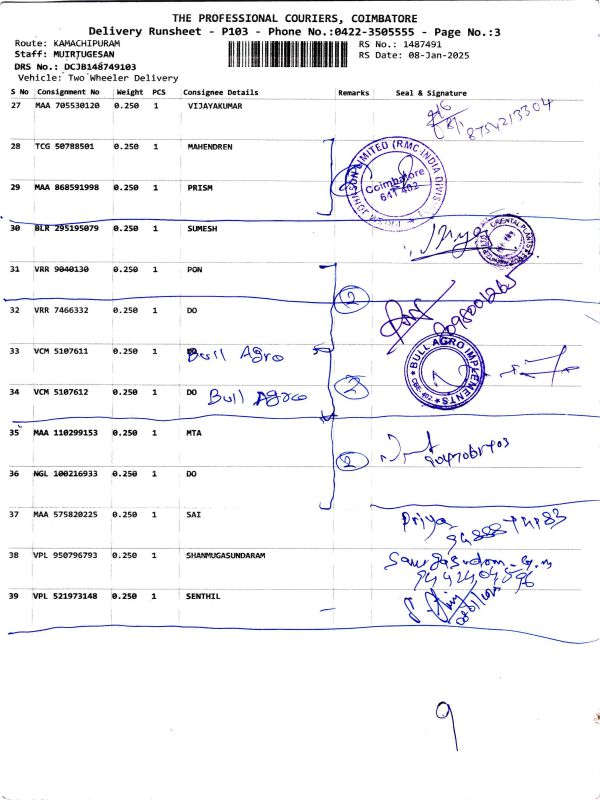 THE PROFESSIONAL COURIERS, COIMBATORE
Delivery Runsheet - P103 - Phone No.:0422-3505555 - Page No.:3
Route: KAMACHIPURAM RS No.: 1487491
Staff: MUIRTUGESAN RS Date: 08-Jan-2025
DRS No.: DCJB148749103
Vehicle: Two Wheeler Delivery
S No Consignment No Weight PCS Consignee Details Remarks Seal & Signature
27 MAA 705530120 0.250 1 VIJAYAKUMAR 8754213304
28 TCG 50788501 0.250 1 MAHENDREN
29 MAA 868591998 0.250 1 PRISM Coimbatore 641 402
30 BLR 295195079 0.250 1 SUMESH
31 VRR 9040130 0.250 1 PON
32 VRR 7466332 0.250 1 DO 2
33 VCM 5107611 0.250 1 Bull Agro
34 VCM 5107612 0.250 1 DO Bull Agro 2 BULL AGRO IMPLEMENTS
35 MAA 110299153 0.250 1 MTA
36 NGL 100216933 0.250 1 DO 2
37 MAA 575820225 0.250 1 SAI Priya
38 VPL 950796793 0.250 1 SHANMUGASUNDARAM
39 VPL 521973148 0.250 1 SENTHIL
9